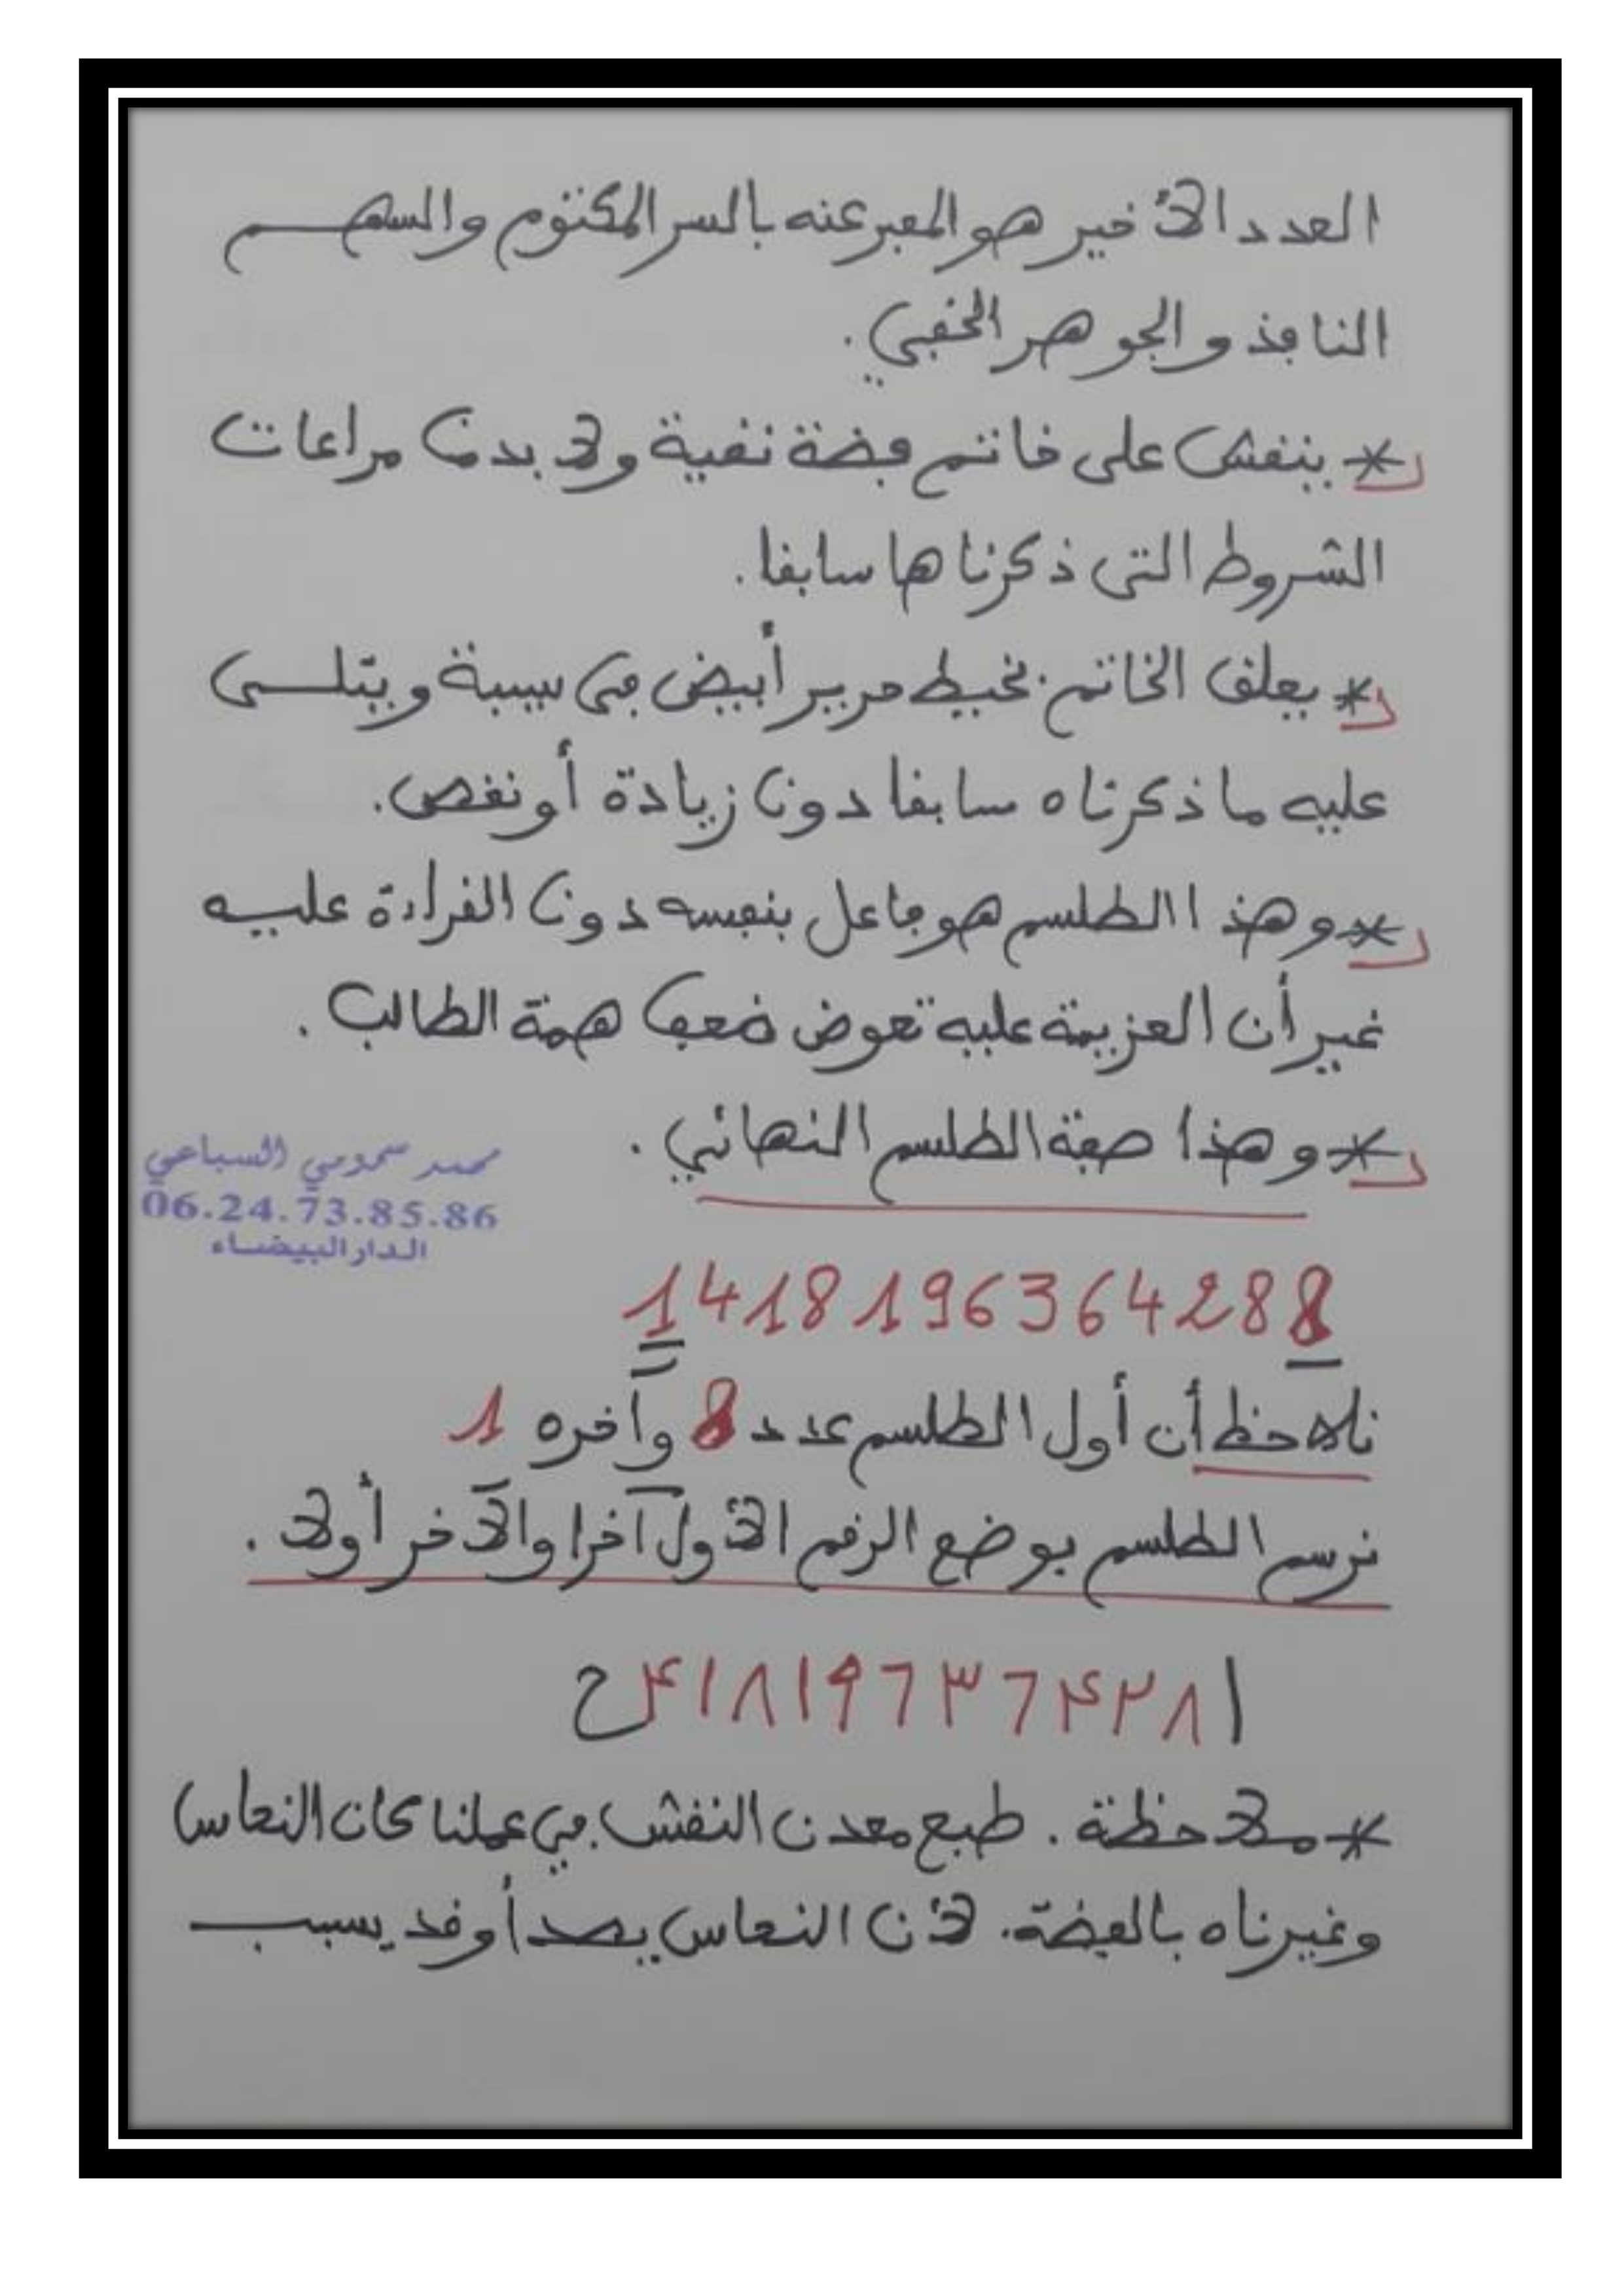 العدد الأخير هو المعبر عنه بالسر المكتوم والسهم
النافذ والجوهر الخفي.
* ينقش على خاتم فضة نقية ولا بد من مراعات
الشروط التي ذكرناها سابقا.
* يعلق الخاتم بخيط حرير أبيض في سيبة ويتلى
عليه ما ذكرناه سابقا دون زيادة أو نقص.
* وهذا الطلسم هو فاعل بنفسه دون القراءة عليه
غير أن العزيمة عليه تعوض ضعف همة الطالب.
* وهذا صفة الطلسم النهائي.
محمد سمومي السباعي
06.24.73.85.86
الدار البيضاء
1418196364288
نلاحظ أن أول الطلسم عدد 8 وآخره 1
نرسم الطلسم بوضع الرقم الأول آخرا والآخر أولا.
ا ۸ ۲ ۴ ٦ ۳ ٦ ۹ ۱ ۸ ۱ ۴ ح
* ملاحظة. طبع معدن النقش في عملنا كان النحاس
وغيرناه بالفضة. لأن النحاس يصدأ وقد يسبب